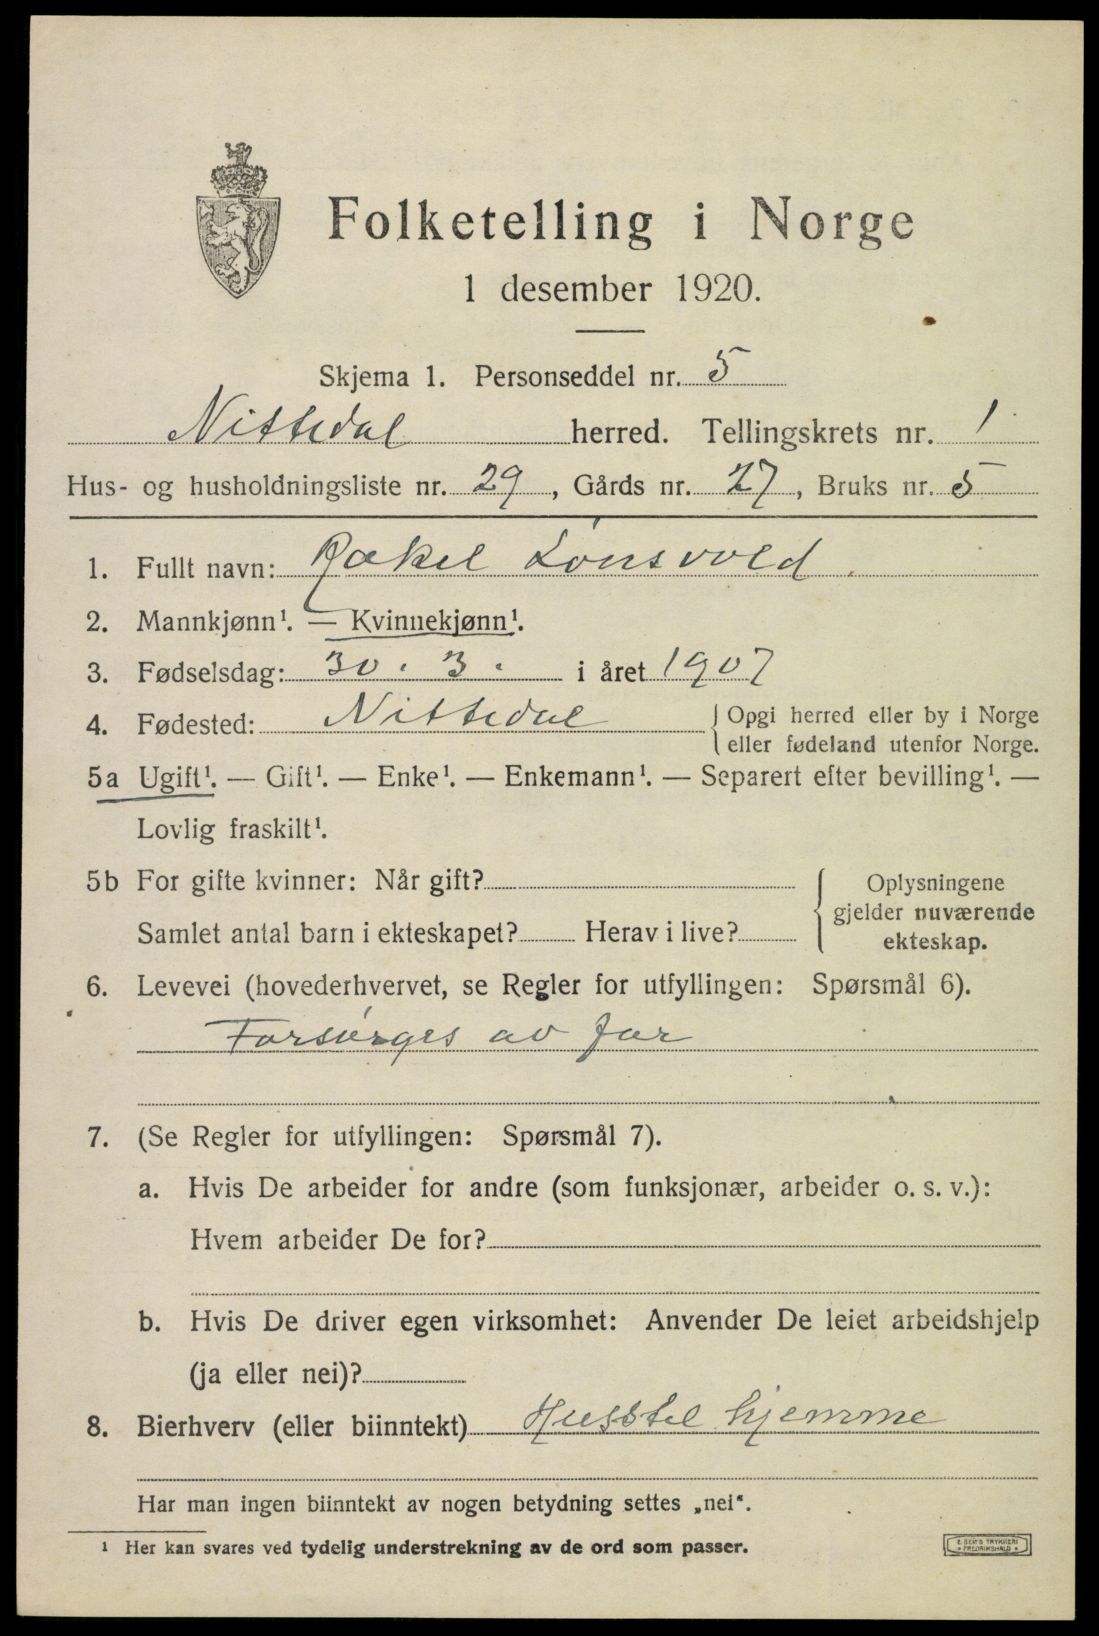 Folketelling i Norge
1 desember 1920.
Skjema 1. Personseddel nr. 5
Nittedal herred. Tellingskrets nr. 1
Hus- og husholdningsliste nr. 29, Gårds nr. 27, Bruks nr. 5
1. Fullt navn: Rakel Lønsvold.
2. Mannkjønn¹. — Kvinnekjønn¹.
3. Fødselsdag: 30. 3. i året 1907
4. Fødested: Nittedal { Opgi herred eller by i Norge
eller fødeland utenfor Norge.
5a Ugift¹. — Gift¹. — Enke¹. — Enkemann¹. — Separert efter bevilling¹. —
Lovlig fraskilt¹.
5b For gifte kvinner: Når gift? { Oplysningene
gjelder nuværende
Samlet antal barn i ekteskapet? Herav i live?
ekteskap.
6. Levevei (hovederhvervet, se Regler for utfyllingen: Spørsmål 6).
Forsørges av far
7. (Se Regler for utfyllingen: Spørsmål 7).
a. Hvis De arbeider for andre (som funksjonær, arbeider o. s. v.):
Hvem arbeider De for?
b. Hvis De driver egen virksomhet: Anvender De leiet arbeidshjelp
(ja eller nei)?
8. Bierhverv (eller biinntekt) Husstel hjemme
Har man ingen biinntekt av nogen betydning settes „nei“.
¹ Her kan svares ved tydelig understrekning av de ord som passer.
E. SEM'S TRYKKERI
FREDRIKSHALD